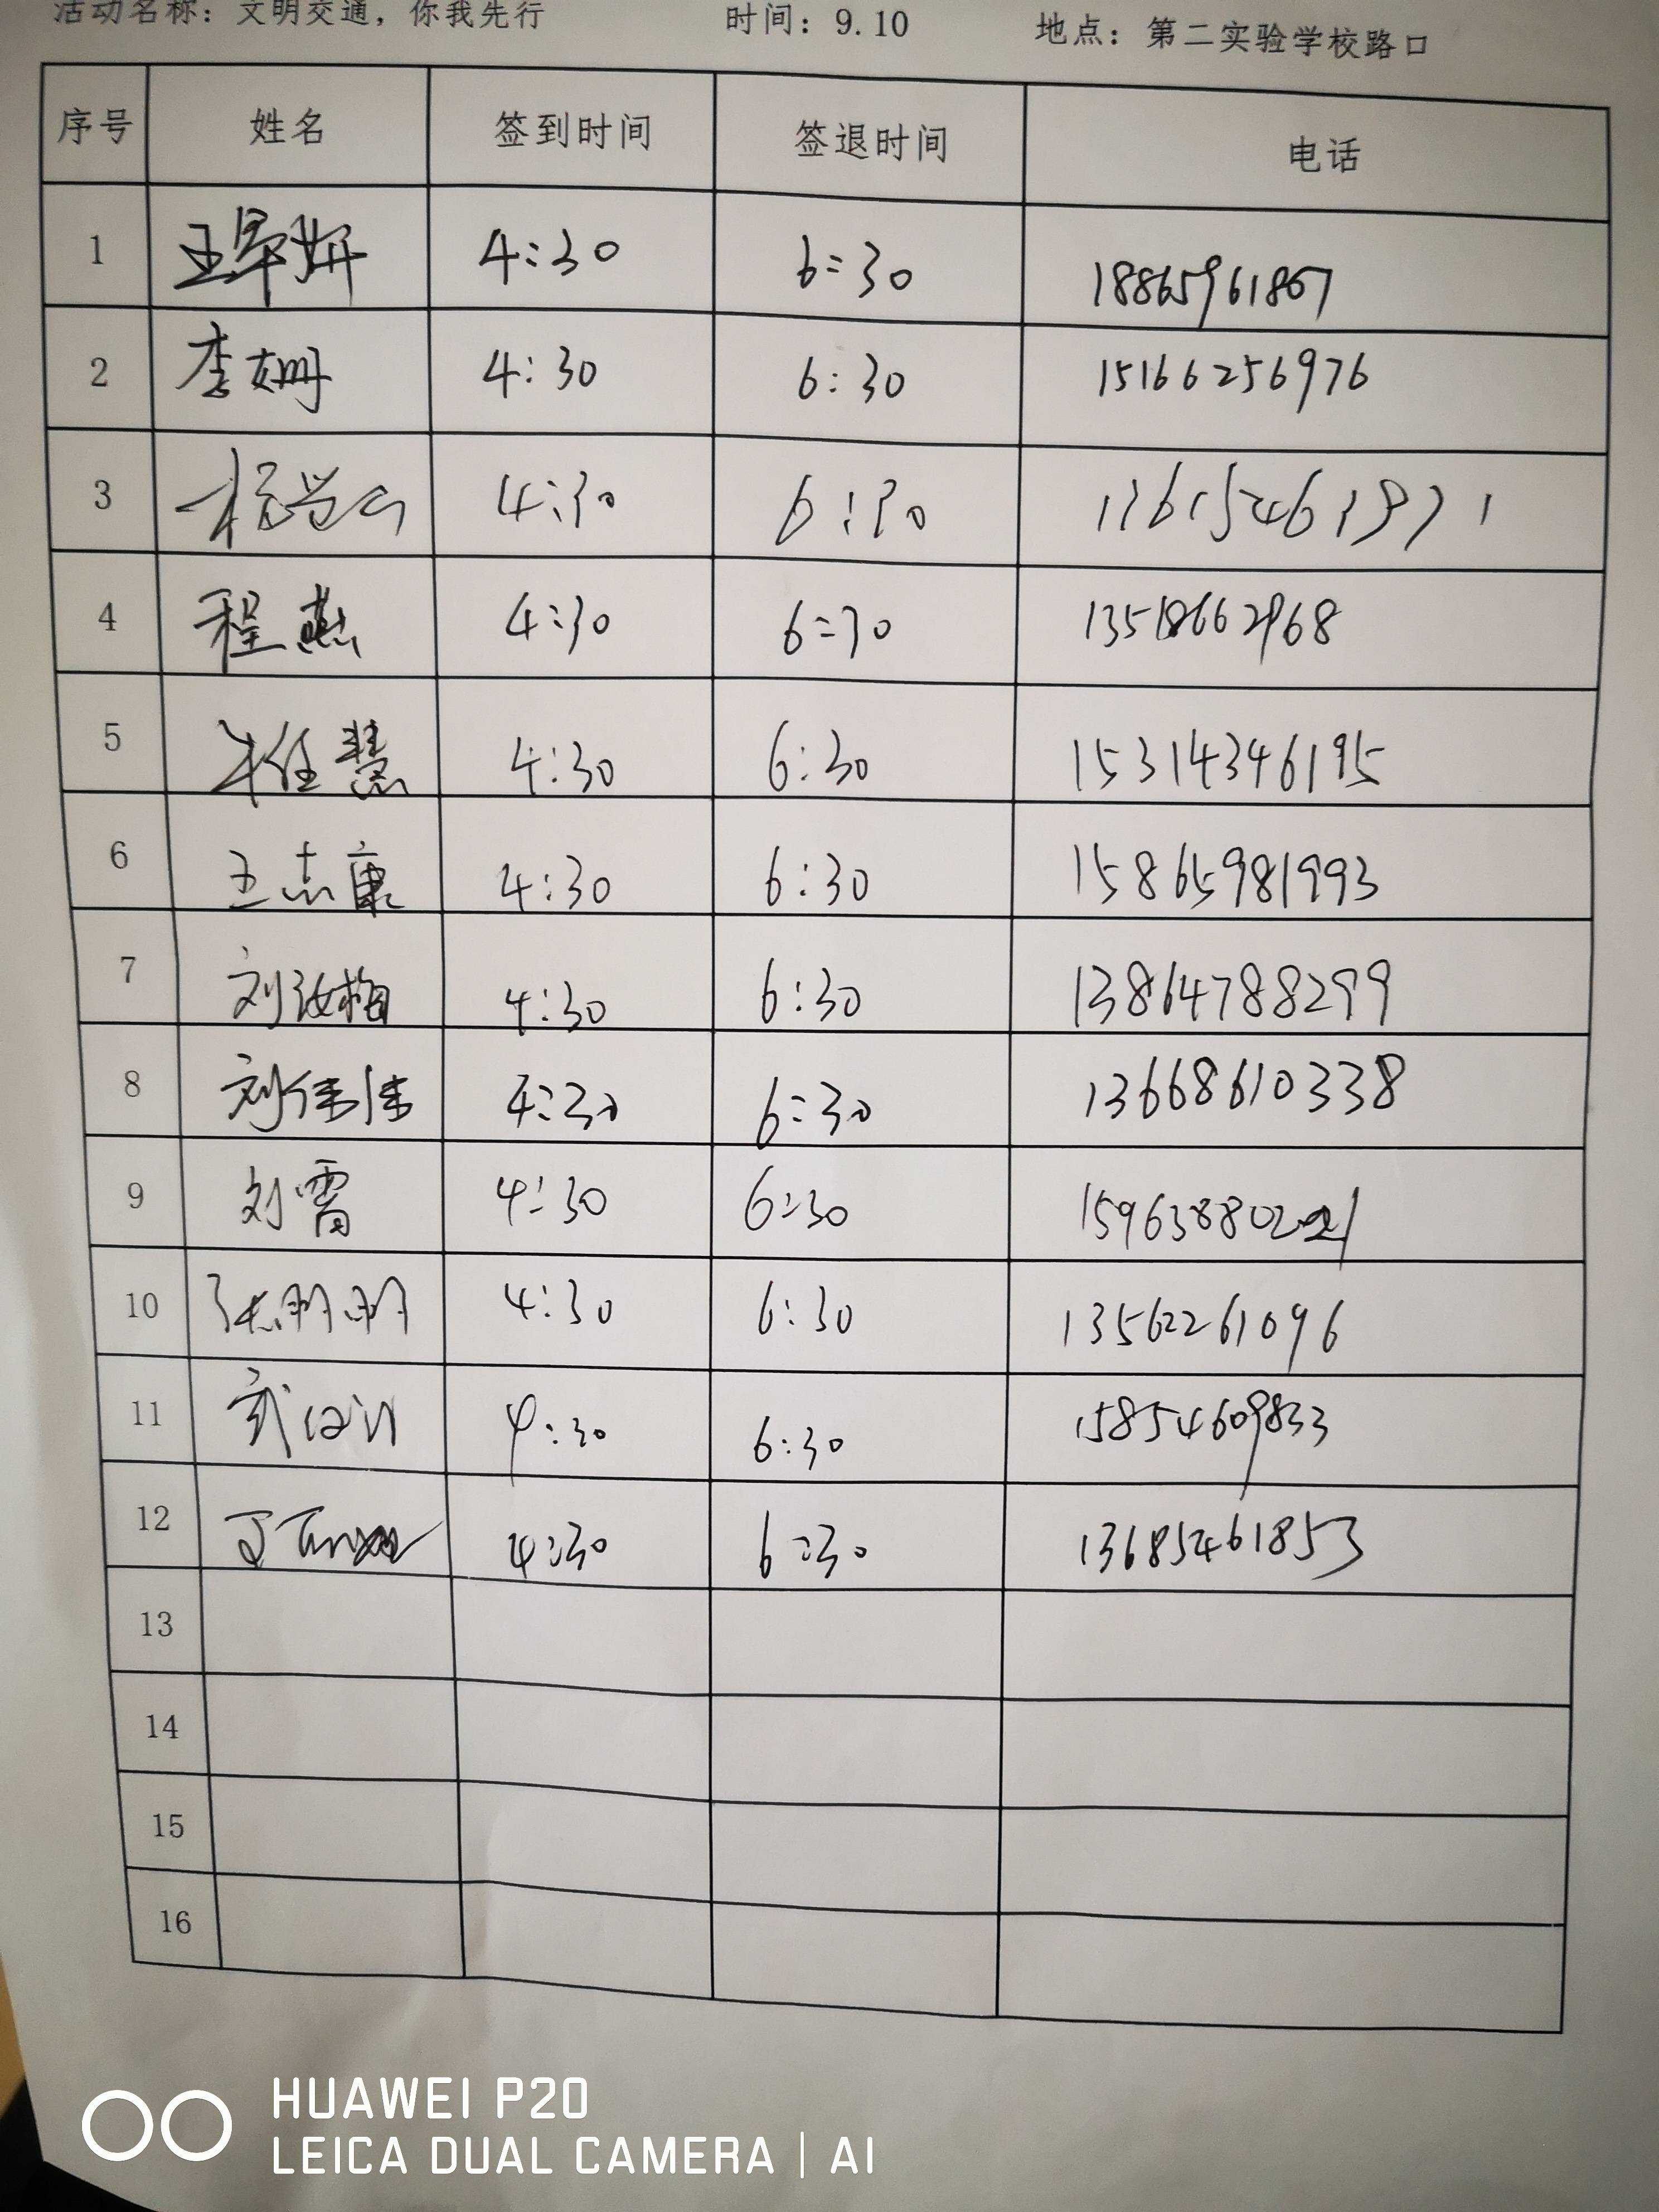 活动名称：文明交通，你我先行 时间：9.10 地点：第二实验学校路口
序号 姓名 签到时间 签退时间 电话
1 4:30 6:30 18865961867
2 李姗 4:30 6:30 15166256976
3 4:30 6:30
4 程燕 4:30 6:30 13518662968
5 慧 4:30 6:30 15314346195
6 王志康 4:30 6:30 15865981993
7 刘汝梅 4:30 6:30 13864788299
8 刘佳佳 4:30 6:30 13668610338
9 刘霄 4:30 6:30
10 张明明 4:30 6:30 13562261096
11 4:30 6:30 15854609833
12 4:30 6:30 13685461853
13
14
15
16
HUAWEI P20
LEICA DUAL CAMERA | AI